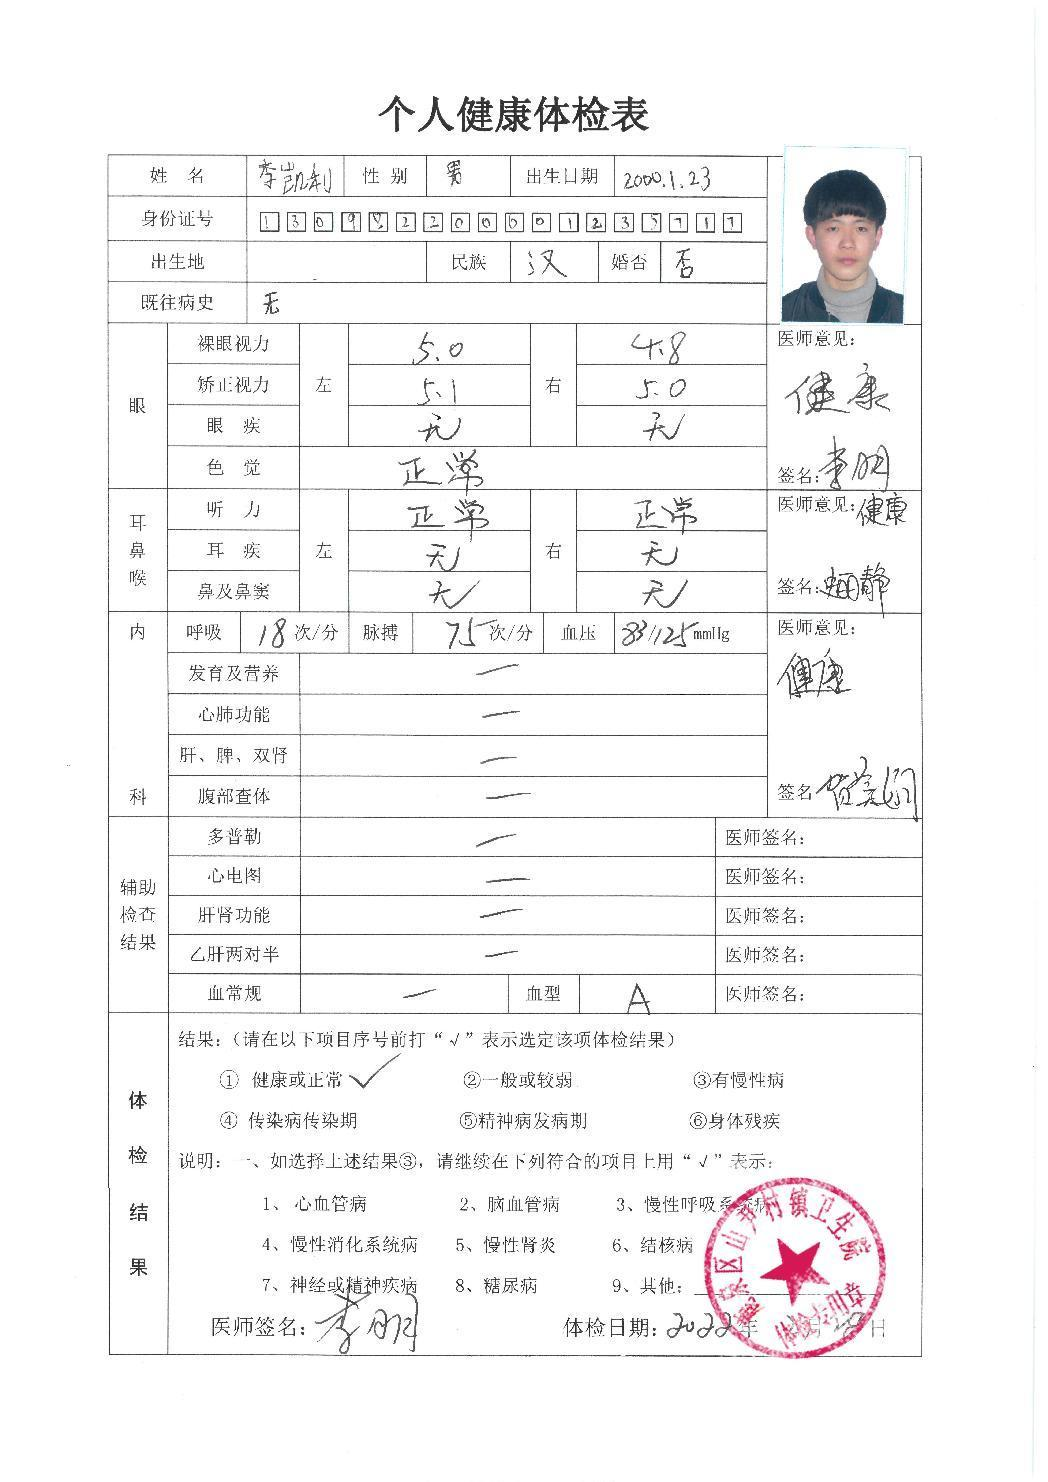 个人健康体检表
姓 名 李凯利 性 别 男 出生日期 2000.1.23
身份证号 130982200001235717
出生地 民族 汉 婚否 否
既往病史 无
眼 裸眼视力 左 5.0 右 4.8 医师意见：
矫正视力 5.1 5.0 健康
眼 疾 无 无
色 觉 正常 签名：李明
耳鼻喉 听 力 左 正常 右 正常 医师意见：健康
耳 疾 无 无
鼻及鼻窦 无 无 签名：
内科 呼吸 18 次/分 脉搏 75 次/分 血压 83/125 mmHg 医师意见：
发育及营养 — 健康
心肺功能 —
肝、脾、双肾 —
腹部查体 — 签名
辅助检查结果 多普勒 — 医师签名：
心电图 — 医师签名：
肝肾功能 — 医师签名：
乙肝两对半 — 医师签名：
血常规 — 血型 A 医师签名：
体检结果 结果：（请在以下项目序号前打“√”表示选定该项体检结果）
① 健康或正常 √ ②一般或较弱 ③有慢性病
④ 传染病传染期 ⑤精神病发病期 ⑥身体残疾
说明：一、如选择上述结果③，请继续在下列符合的项目上用“√”表示：
1、心血管病 2、脑血管病 3、慢性呼吸系统病
4、慢性消化系统病 5、慢性肾炎 6、结核病
7、神经或精神疾病 8、糖尿病 9、其他：
医师签名：李明 体检日期：2022年 月 日
区山尹村镇卫生院